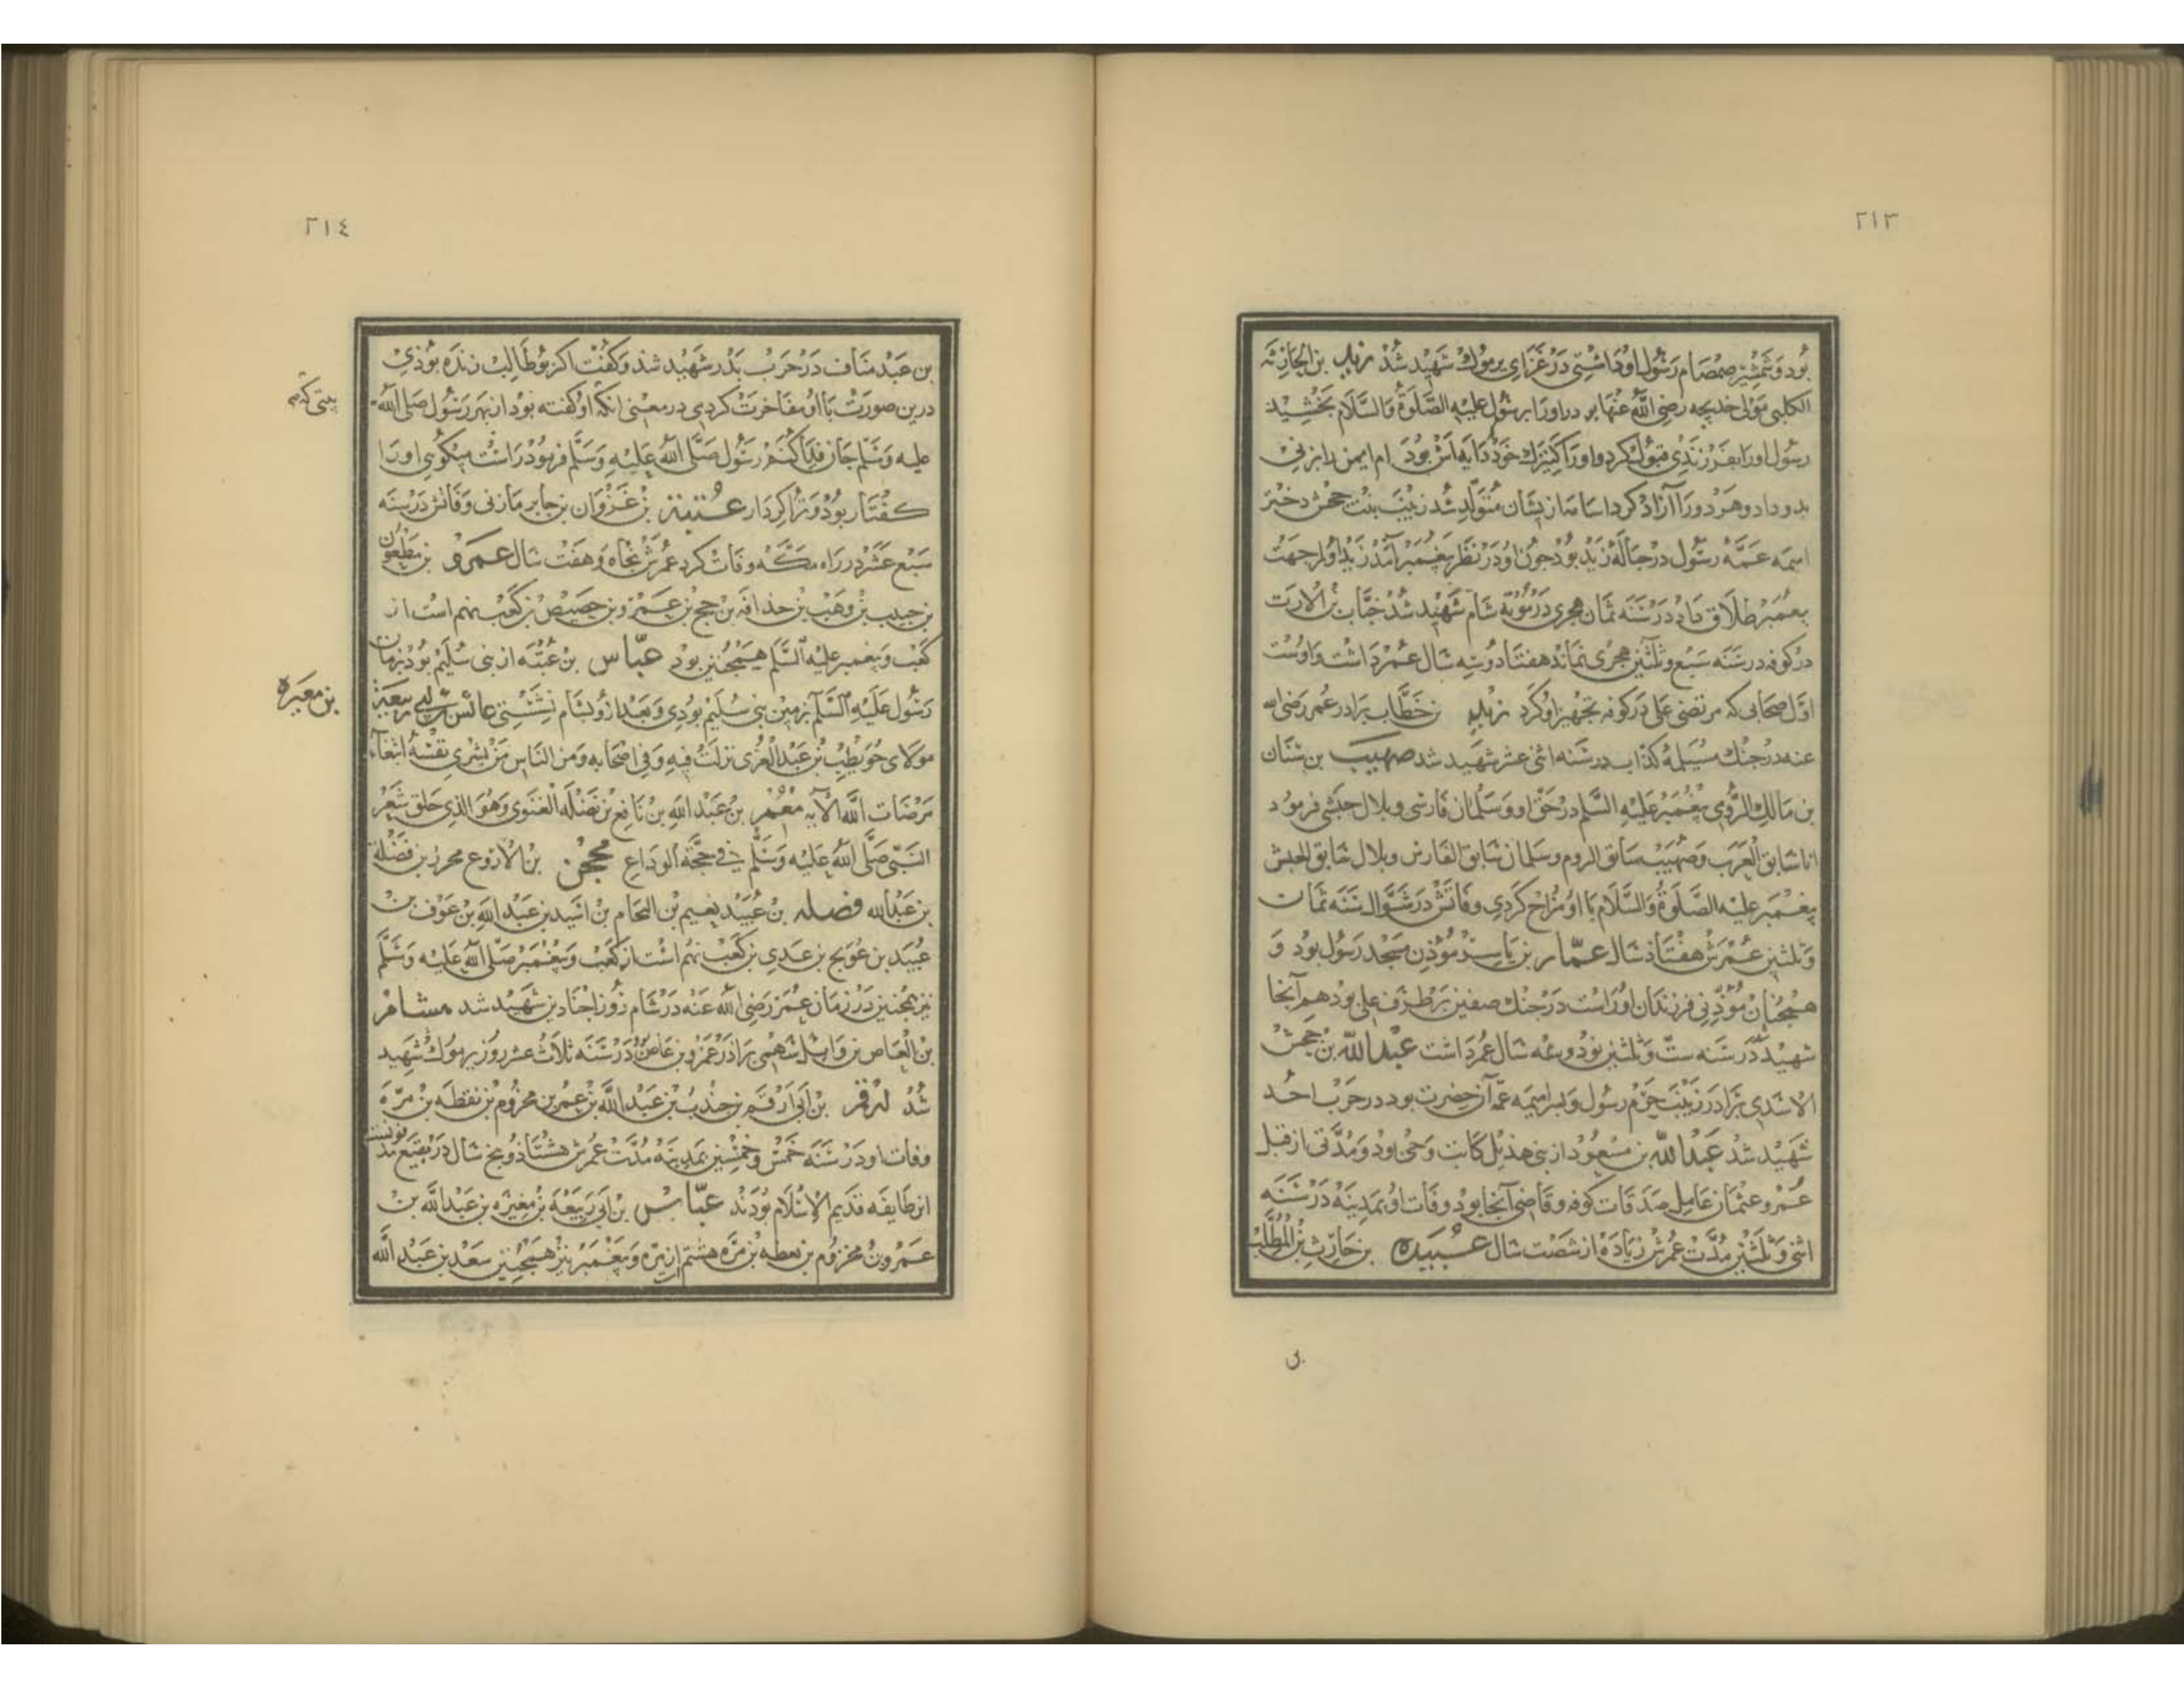 ٢١٣
بود و شمشیر صمصام رسول او داشتی در غزای یرموک شهید شد زید بن الحارثه
الکلبی مولی خدیجه رضی الله عنها بود او را برسول علیه الصلوة والسلام بخشید
رسول او را بفرزندی قبول کرد و او را کنیزک خود دایه اش بود ام ایمن را بزنی
بدو داد و هر دو را آزاد کرد اسامه ازیشان متولد شد زینب بنت جحش دختر
امیمه عمه رسول در حباله زید بود چون او در نظر پیغمبر آمد زید او را جهت
پیغمبر طلاق داد در سنه ثمان هجری در موته شام شهید شد خباب بن الارت
در کوفه در سنه سبع وثلثین هجری نماند هفتاد و سه سال عمر داشت و اوست
اول صحابی که مرتضی علی در کوفه تجهیز او کرد زید بن خطاب برادر عمر رضی الله
عنه در جنک مسیلمه کذاب در سنه اثنی عشر شهید شد صهیب بن سنان
بن مالک الرومی پیغمبر علیه السلم در حق او و سلمان فارسی و بلال حبشی فرمود
انا سابق العرب وصهیب سابق الروم وسلمان سابق الفارس وبلال سابق الحبش
پیغمبر علیه الصلوة والسلام با او مزاح کردی وفاتش در شوال سنه ثمان
وثلثین عمرش هفتاد سال عمار بن یاسر مؤذن مسجد رسول بود و
همچنان مؤذنی فرزندان او راست در جنک صفین بر طرف علی بود هم آنجا
شهید شد در سنه ست وثلثین نود و سه سال عمر داشت عبد الله بن جحش
الاسدی برادر زینب حرم رسول و پسر امیمه عمه آن حضرت بود در حرب احد
شهید شد عبد الله بن مسعود از بنی هذیل کاتب وحی بود و مدتی از قبل
عمر و عثمان عامل صدقات کوفه و قاضی آنجا بود وفات او بمدینه در سنه
اثنی وثلثین مدت عمرش زیاده از شصت سال عبیده بن حارث بن المطلب
بن
٢١٤
بن عبد مناف در حرب بدر شهید شد و گفت اکر بوطالب زنده بوذی
درین صورت با او مفاخرت کردمی در معنی انکه او کفته بود از بهر رسول صلی الله
بیتی که
علیه وسلم جان فدا کنم رسول صلی الله علیه وسلم فرمود راست میکویی او را
کفتار بود و ترا کردار عتبة بن غزوان بن جابر مازنی وفاتش در سنه
سبع عشر در راه مکه وفات کرد عمرش پنجاه و هفت سال عمرو بن مظعون
بن حبیب بن وهب بن حذافه بن جمح بن عمرو بن حصیص بن کعب نهم است از
کعب و پیغمبر علیه السلم همچنین بود عباس بن عتبه از بنی سلیم بود بزمان
رسول علیه السلم بزمین بنی سلیم بودی و بعد ازو بشام نشستی عائس بن ابی ربیعة
بن مغیره
مولای حویطب بن عبد العزی نزلت فیه وفی اصحابه ومن الناس من یشری نفسه ابتغاء
مرضات الله الآیه معمر بن عبد الله بن نافع بن نضله الغنوی وهو الذی حلق شعر
النبی صلی الله علیه وسلم فی حجة الوداع محجن بن الادرع محرز بن فضلة
بن عبد الله فضله بن عبید نعیم بن النحام بن اسید بن عبد الله بن عوف بن
عبید بن عویج بن عدی بن کعب نهم است از کعب و پیغمبر صلی الله علیه وسلم
نیز همچنین در زمان عمر رضی الله عنه در شام روز اجنادین شهید شد هشام
بن العاص بن وایل سهمی برادر عمرو بن عاص در سنه ثلاث عشر روز یرموک شهید
شد ارقم بن ابی ارقم بن جندب بن عبد الله بن عمر بن مخزوم بن نقطه بن مره
وفات او در سنه خمس وخمسین بمدینه مدت عمرش هشتاد و پنج سال در بقیع مدفونست
این طایفه قدیم الاسلام بودند عباس بن ابی ربیعة بن مغیره بن عبد الله بن
عمرو بن مخزوم بن نعطه بن مره هشتم از مره و پیغمبر نیز همچنین سعد بن عبد الله